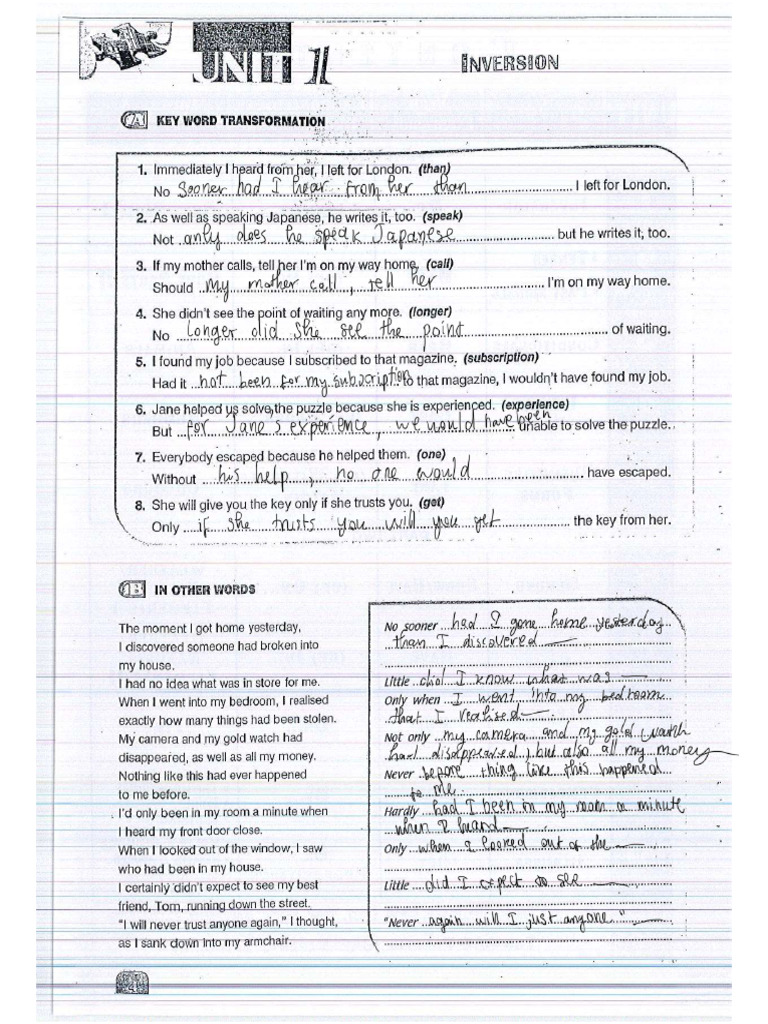 UNIT 1
INVERSION
A KEY WORD TRANSFORMATION
1. Immediately I heard from her, I left for London. (than)
No Sooner had I hear from her than I left for London.
2. As well as speaking Japanese, he writes it, too. (speak)
Not only does he speak Japanese but he writes it, too.
3. If my mother calls, tell her I'm on my way home. (call)
Should my mother call, tell her I'm on my way home.
4. She didn't see the point of waiting any more. (longer)
No longer did she see the point of waiting.
5. I found my job because I subscribed to that magazine. (subscription)
Had it not been for my subscription to that magazine, I wouldn't have found my job.
6. Jane helped us solve the puzzle because she is experienced. (experience)
But for Jane's experience, we would have been unable to solve the puzzle.
7. Everybody escaped because he helped them. (one)
Without his help, no one would have escaped.
8. She will give you the key only if she trusts you. (get)
Only if she trusts you will you get the key from her.
B IN OTHER WORDS
The moment I got home yesterday,
I discovered someone had broken into
my house.
I had no idea what was in store for me.
When I went into my bedroom, I realised
exactly how many things had been stolen.
My camera and my gold watch had
disappeared, as well as all my money.
Nothing like this had ever happened
to me before.
I'd only been in my room a minute when
I heard my front door close.
When I looked out of the window, I saw
who had been in my house.
I certainly didn't expect to see my best
friend, Tom, running down the street.
"I will never trust anyone again," I thought,
as I sank down into my armchair.
No sooner had I gone home yesterday
than I discovered
Little did I know what was
Only when I went into my bedroom
that I realised
Not only my camera and my gold watch
had disappeared, but also all my money
Never before thing like this happened
to me
Hardly had I been in my room a minute
when I heard
Only when I looked out of the
Little did I expect to see
"Never again will I just anyone"